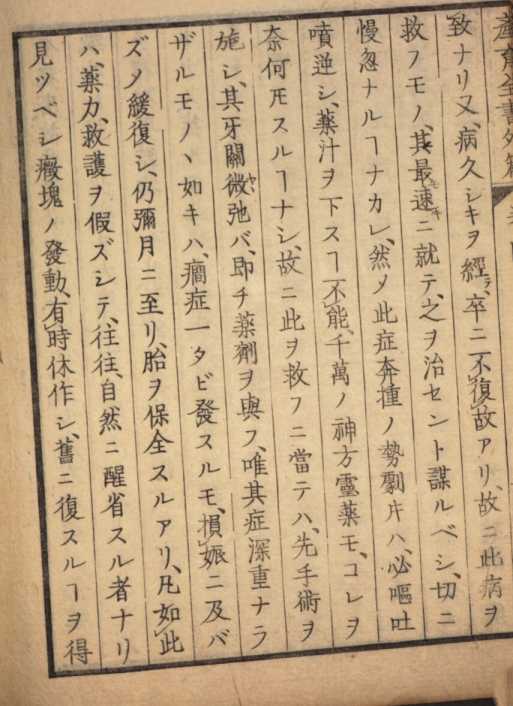 産育全書外篇
致ナリ又、病久シキヲ經、卒ニ不復故アリ、故ニ此病ヲ
救フモノ、其最速ニ就テ、之ヲ治セント謀ルベシ、切ニ
慢忽ナルヿナカレ、然メ此症奔撞ノ勢劇キハ、必嘔吐
噴逆シ、藥汁ヲ下スヿ不能、千萬ノ神方靈藥モ、コレヲ
奈何𪜈スルヿナシ、故ニ此ヲ救フニ當テハ、先手術ヲ
施シ、其牙關微弛バ、即チ藥劑ヲ與フ、唯其症深重ナラ
ザルモノヽ如キハ、癇症一タビ發スルモ、損娠ニ及バ
ズメ緩復シ、仍彌月ニ至リ、胎ヲ保全スルアリ、凡如此
ハ、藥力、救護ヲ假ズシテ、往往、自然ニ醒省スル者ナリ
見ツベシ癥塊ノ發動、有時休作シ、舊ニ復スルヿヲ得